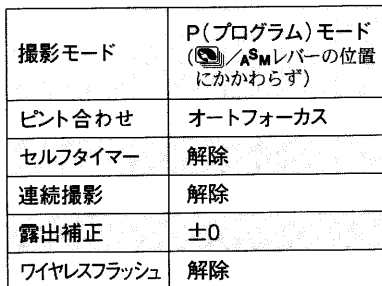 撮影モード
P(プログラム)モード
(/ASMレバーの位置
にかかわらず)
ピント合わせ
オートフォーカス
セルフタイマー
解除
連続撮影
解除
露出補正
±0
ワイヤレスフラッシュ
解除